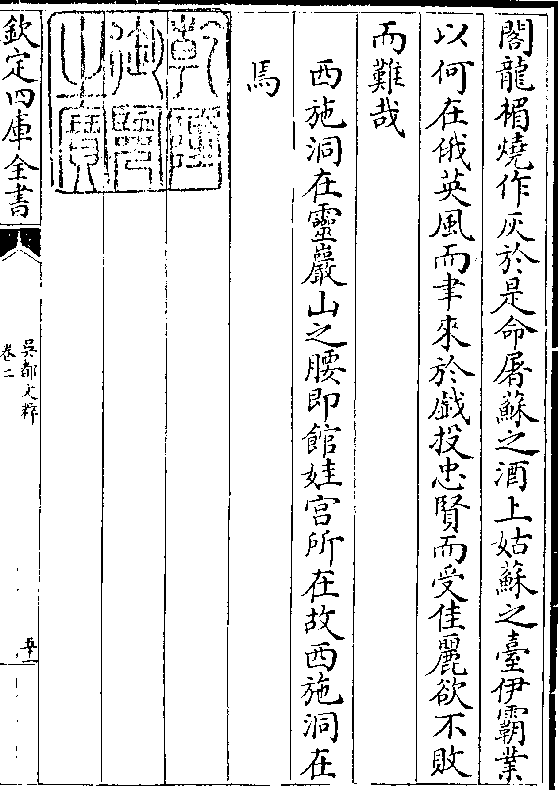 閣龍楣燒作灰於是命屠蘇之酒上姑蘇之臺伊霸業
以何在俄英風而聿來於戯投忠賢而受佳麗欲不敗
而難哉
西施洞在靈巖山之腰即館娃宫所在故西施洞在
馬
乾隆御覽之寶
欽定四庫全書
吳都文粹
卷二